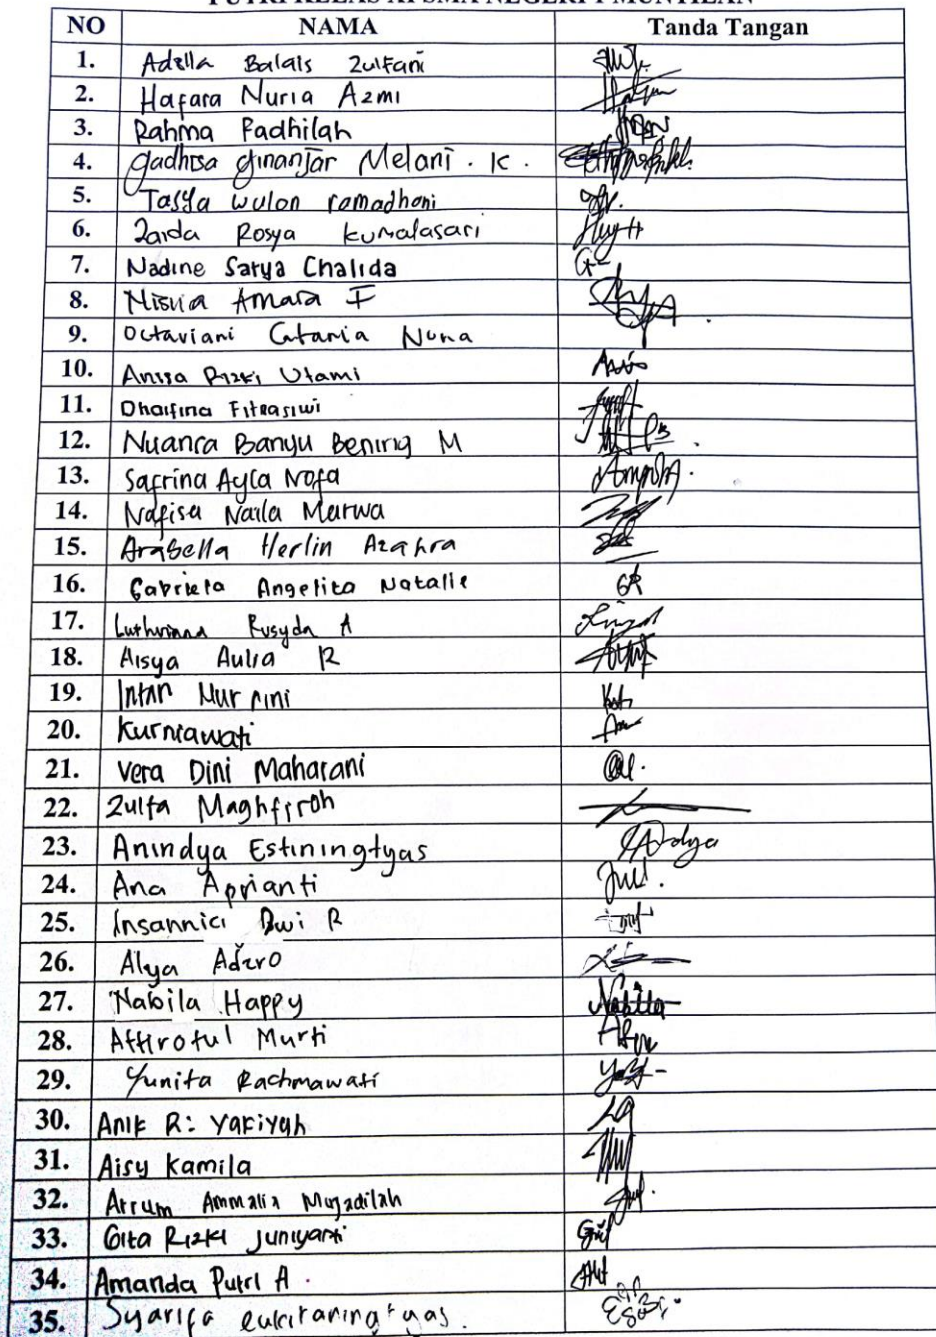 PUTRI KELAS XI SMA NEGERI 1 MUNTILAN
NO NAMA Tanda Tangan
1. Adella Balqis Zulfani
2. Hafara Nuria Azmi
3. Rahma Fadhilah
4. Gadhisa Ginanjar Melani . K .
5. Tasya wulan ramadhani
6. Zaida Rosya kumalasari
7. Nadine Satya Chalida
8. Nisvia Amara F
9. Octaviani Catania Nuna
10. Anisa Rizki Utami
11. Dhaifina Fitrasiwi
12. Nuansa Banyu Bening M
13. Safrina Ayla Nofa
14. Nafisa Naila Marwa
15. Arabella Herlin Azahra
16. Gabriela Angelita Natalie
17. Rusyda A
18. Aisya Aulia R
19. Intan Nur rini
20. Kurniawati
21. Vera Dini Maharani
22. Zulfa Maghfiroh
23. Anindya Estiningtyas
24. Ana Aprianti
25. Insannici Dwi R
26. Alya
27. Nabila Happy Nabilla
28. Afifrotul Murti
29. Yunita Rachmawati
30. Anik R: Yakiyah
31. Aisy Kamila
32. Arrum Ammalia Mujadilah
33. Gita Rizki Juniyarti
34. Amanda Putri A .
35. Syarifa